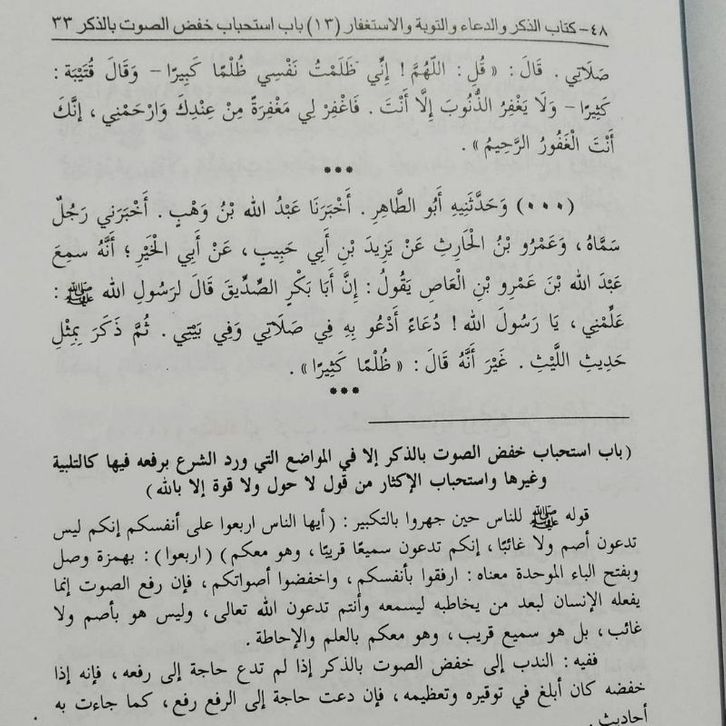 ٤٨- كتاب الذكر والدعاء والتوبة والاستغفار (١٣) باب استحباب خفض الصوت بالذكر ٣٣
صَلَاتِي . قَالَ : « قُلِ : اللّٰهُمَّ ! إِنِّي ظَلَمْتُ نَفْسِي ظُلْمًا كَبِيرًا – وَقَالَ قُتَيْبَة :
كَثِيرًا – وَلَا يَغْفِرُ الذُّنُوبَ إِلَّا أَنْتَ . فَاغْفِرْ لِي مَغْفِرَةً مِنْ عِنْدِكَ وَارْحَمْنِي ، إِنَّكَ
أَنْتَ الْغَفُورُ الرَّحِيمُ » .
***
(٠٠٠) وَحَدَّثَنِيهِ أَبُو الطَّاهِرِ . أَخْبَرَنَا عَبْدُ الله بْنُ وَهْبٍ . أَخْبَرَنِي رَجُلٌ
سَمَّاهُ ، وَعَمْرُو بْنُ الْحَارِثِ عَنْ يَزِيدَ بْنِ أَبِي حَبِيبٍ ، عَنْ أَبِي الْخَيْرِ ؛ أَنَّهُ سمِعَ
عَبْدَ الله بْنَ عَمْرِو بْنِ الْعَاصِ يَقُولُ : إِنَّ أَبَا بَكْرٍ الصِّدِّيقَ قَالَ لرَسُولِ الله ﷺ :
عَلِّمْنِي ، يَا رَسُولَ الله ! دُعَاءً أَدْعُو بِهِ فِي صَلَاتِي وَفِي بَيْتِي . ثُمَّ ذَكَرَ بِمِثْلِ
حَدِيثِ اللَّيْثِ . غَيْرَ أَنَّهُ قَالَ : « ظُلْمًا كَثِيرًا » .
***
(باب استحباب خفض الصوت بالذكر إلا في المواضع التي ورد الشرع برفعه فيها كالتلبية
وغيرها واستحباب الإكثار من قول لا حول ولا قوة إلا بالله)
قوله ﷺ للناس حين جهروا بالتكبير : (أيها الناس اربعوا على أنفسكم إنكم ليس
تدعون أصم ولا غائبًا ، إنكم تدعون سميعًا قريبًا ، وهو معكم) (اربعوا) : بهمزة وصل
وبفتح الباء الموحدة معناه : ارفقوا بأنفسكم ، واخفضوا أصواتكم ، فإن رفع الصوت إنما
يفعله الإنسان لبعد من يخاطبه ليسمعه وأنتم تدعون الله تعالى ، وليس هو بأصم ولا
غائب ، بل هو سميع قريب ، وهو معكم بالعلم والإحاطة .
ففيه : الندب إلى خفض الصوت بالذكر إذا لم تدع حاجة إلى رفعه ، فإنه إذا
خفضه كان أبلغ في توقيره وتعظيمه ، فإن دعت حاجة إلى الرفع رفع ، كما جاءت به
أحاديث .